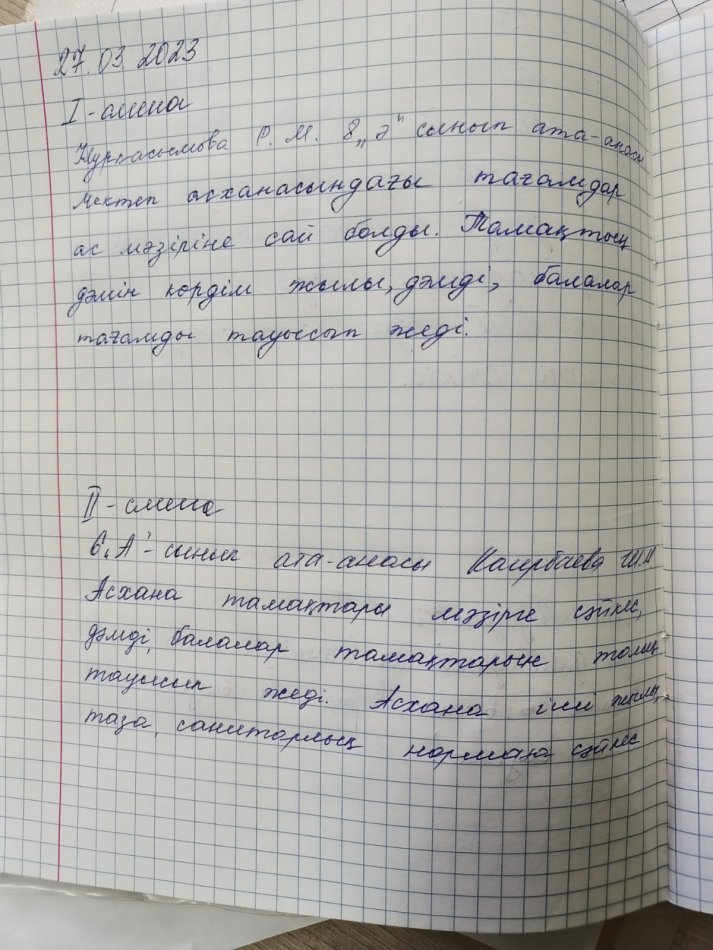 27.03 2023
I - смена
Нургасымова Р. М. 8 „ә" сынып ата-анасы
Мектеп асханасындағы тағамдар
ас мәзіріне сай болды. Тамақтың
дәмін көрдім жылы, дәмді, балалар
тағамды тауысып жеді.
II - смена
6 „А" - сынып ата-анасы Каирбаева Ш М
Асхана тамақтары мәзірге сәйкес,
дәмді, балалар тамақтарын толық
тауысып жеді. Асхана іші жылы,
таза, санитарлық нормаға сәйкес